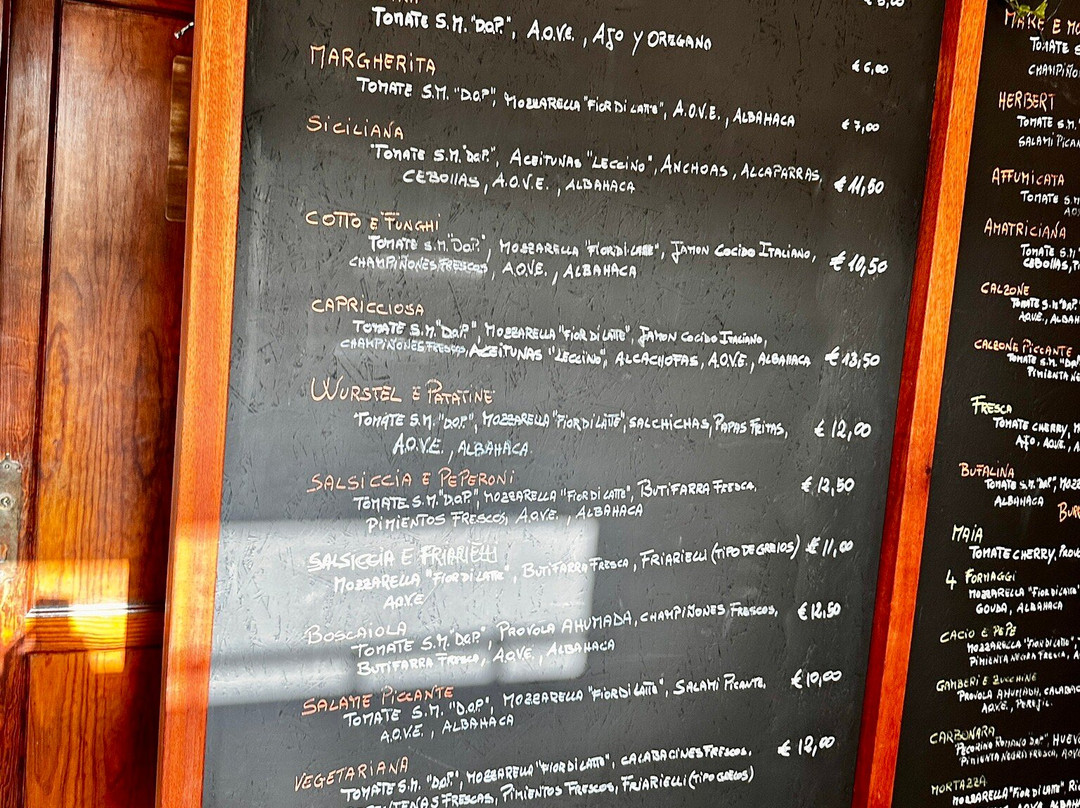 TOMATE S.M. "D.O.P.", A.O.V.E., AJO Y OREGANO
MARGHERITA € 6,00
TOMATE S.M. "D.O.P.", MOZZARELLA "FIOR DI LATTE", A.O.V.E., ALBAHACA € 7,00
SICILIANA
TOMATE S.M. "D.O.P.", ACEITUNAS "LECCINO", ANCHOAS, ALCAPARRAS, € 11,50
CEBOLLAS, A.O.V.E., ALBAHACA
COTTO E FUNGHI
TOMATE S.M. "D.O.P.", MOZZARELLA "FIOR DI LATTE", JAMON COCIDO ITALIANO, € 10,50
CHAMPIÑONES FRESCOS, A.O.V.E., ALBAHACA
CAPRICCIOSA
TOMATE S.M. "D.O.P.", MOZZARELLA "FIOR DI LATTE", JAMON COCIDO ITALIANO,
CHAMPIÑONES FRESCOS, ACEITUNAS "LECCINO", ALCACHOFAS, A.O.V.E., ALBAHACA € 13,50
WURSTEL E PATATINE
TOMATE S.M. "D.O.P.", MOZZARELLA "FIOR DI LATTE", SALCHICHAS, PAPAS FRITAS, € 12,00
A.O.V.E., ALBAHACA
SALSICCIA E PEPERONI
TOMATE S.M. "D.O.P.", MOZZARELLA "FIOR DI LATTE", BUTIFARRA FRESCA, € 12,50
PIMIENTOS FRESCOS, A.O.V.E., ALBAHACA
SALSICCIA E FRIARIELLI
MOZZARELLA "FIOR DI LATTE", BUTIFARRA FRESCA, FRIARIELLI (TIPO DE GRELOS) € 11,00
A.O.V.E
BOSCAIOLA
TOMATE S.M. "D.O.P.", PROVOLA AHUMADA, CHAMPIÑONES FRESCOS, € 12,50
BUTIFARRA FRESCA, A.O.V.E., ALBAHACA
SALAME PICCANTE
TOMATE S.M. "D.O.P.", MOZZARELLA "FIOR DI LATTE", SALAMI PICANTE, € 10,00
A.O.V.E., ALBAHACA
VEGETARIANA
TOMATE S.M. "D.O.P.", MOZZARELLA "FIOR DI LATTE", CALABACINES FRESCOS, € 12,00
FRESCAS, PIMIENTOS FRESCOS, FRIARIELLI (TIPO GRELOS)
MARE E
TOMATE S.M.
HERBERT
TOMATE S.M.
SALAMI
AFFUMICATA
TOMATE S.M.
AMATRICIANA
TOMATE S.M.
CEBOLLAS,
CALZONE
TOMATE S.M. "D.O.P."
A.O.V.E., ALBAHACA
CALZONE PICCANTE
TOMATE S.M.
PIMIENTA
FRESCA
TOMATE CHERRY,
AJO, A.O.V.E.,
BUFALINA
TOMATE S.M. "D.O.P.",
ALBAHACA
MAIA
TOMATE CHERRY,
4 FORMAGGI
MOZZARELLA "FIOR DI LATTE"
GOUDA, ALBAHACA
CACIO E PEPE
MOZZARELLA "FIOR DI LATTE",
PIMIENTA NEGRA FRESCA,
GAMBERI E ZUCCHINE
PROVOLA AHUMADA,
A.O.V.E., PEREJIL
CARBONARA
PECORINO ROMANO "D.O.P.",
PIMIENTA NEGRA FRESCA,
MORTAZZA
MOZZARELLA "FIOR DI LATTE",